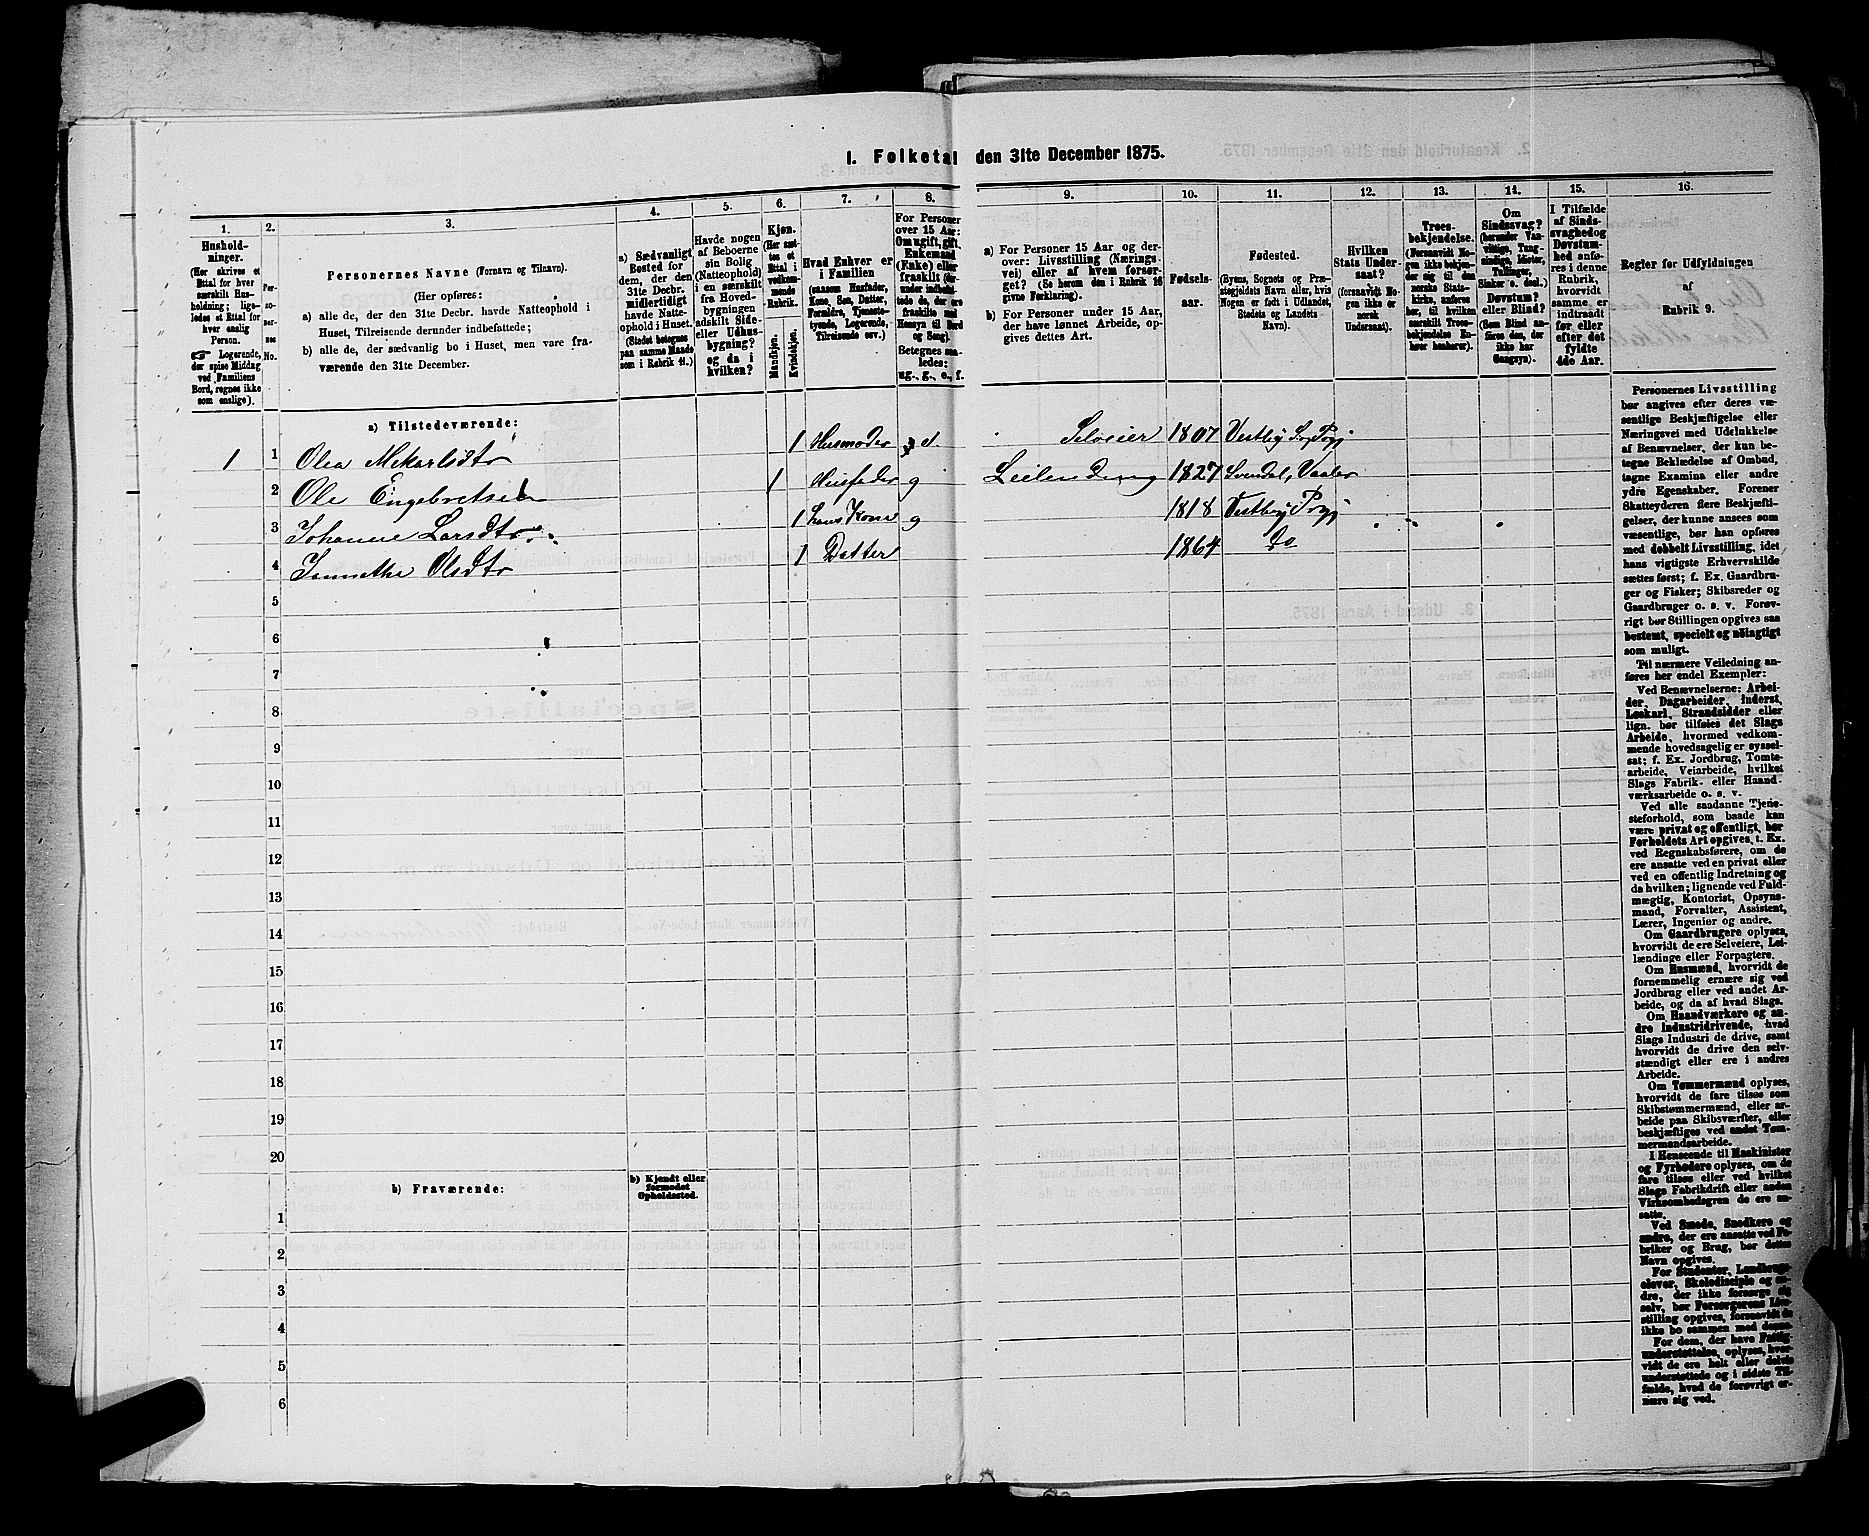 1. Folketal den 31te December 1875.
1. 2. 3. 4. 5. 6. 7. 8. 9. 10. 11. 12. 13. 14. 15. 16.
Hushold-
ninger.
(Her skrives et
Ettal for hver
særskilt Hus-
holdning; lige-
ledes et Ettal for
hver enslig
Person.
☞ Logerende,
der spise Middag
ved Familiens
Bord, regnes ikke
som enslige).
Personernes Navne (Fornavn og Tilnavn).
(Her opføres:
a) alle de, der den 31te Decbr. havde Natteophold i
Huset, Tilreisende derunder indbefattede;
b) alle de, der sædvanlig bo i Huset, men vare fra-
værende den 31te December.
a) Sædvanligt
Bosted for
dem, der den
31te Decbr.
midlertidigt
havde Natte-
ophold i Huset.
(Stedet betegnes
paa samme Maade
som i Rubrik 11.)
Havde nogen
af Beboerne
sin Bolig
(Natteophold)
i en særskilt
fra Hoved-
bygningen
adskilt Side-
eller Udhus-
bygning?
og da i
hvilken?
Kjøn.
(Her sæt-
tes et
Ettal i
vedkom-
mende
Rubrik.
Mandkjøn.
Kvindekjøn.
Hvad Enhver er
i Familien
(saasom Husfader,
Kone, Søn, Datter,
Forældre, Tjeneste-
tyende, Logerende,
Tilreisende osv.)
For Personer
over 15 Aar:
Om ugift, gift,
Enkemand
(Enke) eller
fraskilt (for-
under indbefat-
tede de, der ere
fraskilte med
Hensyn til Bord
og Seng).
Betegnes saa-
ledes:
ug., g., e., f.
a) For Personer 15 Aar og der-
over: Livsstilling (Nærings-
vei) eller af hvem forsør-
get? (Se herom den i Rubrik 16
givne Forklaring).
b) For Personer under 15 Aar,
der have lønnet Arbeide, op-
gives dettes Art.
Fødsels-
aar.
Fødested.
(Byens, Sognets og Præ-
stegjeldets Navn eller, hvis
Nogen er født i Udlandet,
Stedets og Landets
Navn).
Hvilken
Stats Under-
saat?
(forsaavidt No-
gen ikke er
norsk
Undersaat).
Troes-
bekjendelse.
(Forsaavidt No-
gen ikke bekjen-
der sig til den
norske Stats-
kirke, anføres
her, til hvilken
særskilt Troes-
bekjendelse En-
hver henhører).
Om
Sindssvag?
(herunder Van-
vittige, Tung-
sindige, Idioter,
Tullinger,
Sinker o. desl.)
Døvstum?
eller Blind?
(Som Blind an-
føres den, der
ikke har
Gangsyn).
I Tilfælde
af Sinds-
svaghed og
Døvstum-
hed anfø-
res i denne
Rubrik,
hvorvidt
samme er
indtraadt
før eller
efter det
fyldte
4de Aar.
Regler for Udfyldningen
af
Rubrik 9.
a) Tilstedeværende:
1 1 Olea Mekarlsdtr 1 Husmoder e. Seloeier 1807 Vestby S. Prgj
2 Ole Engebretsen 1 Husfader g Leilending 1827 Svendal, Vaaler
3 Johanne Larsdtr. 1 hans Kone g 1818 Vestby Prgj
4 Jannethe Olsdtr 1 Datter 1864 do
5
6
7
8
9
10
11
12
13
14
15
16
17
18
19
20
b) Fraværende:
b) Kjendt eller
formodet
Opholdssted.
1
2
3
4
5
6
Personernes Livsstilling
bør angives efter deres væ-
sentlige Beskjæftigelse eller
Næringsvei med Udelukkelse
af Benævnelser, der kun be-
tegne Beklædelse af Ombud,
tagne Examina eller andre
ydre Egenskaber. Forener
Skatteyderen flere Beskjæfti-
gelser, der kunne ansees som
væsentlige, bør han opføres
med dobbelt Livsstilling, idet
hans vigtigste Erhvervskilde
sættes først; f. Ex. Gaardbru-
ger og Fisker; Skibsreder og
Gaardbruger o. s. v. Forøv-
rigt bør Stillingen opgives saa
bestemt, specielt og nøiagtigt
som muligt.
Til nærmere Veiledning an-
føres her endel Exempler:
Ved Benævnelserne: Arbei-
der, Dagarbeider, Inderst,
Løskarl, Strandsidder eller
lign. bør tilføies det Slags
Arbeide, hvormed vedkom-
mende hovedsagelig er syssel-
sat; f. Ex. Jordbrug, Tomte-
arbeide, Veiarbeide, hvilket
Slags Fabrik- eller Haand-
værksarbeide o. s. v.
Ved alle saadanne Tjene-
steforhold, som baade kan
være privat og offentligt, bør
Forholdets Art opgives, t. Ex.
ved Regnskabsførere, om de
ere ansatte ved en privat eller
ved en offentlig Indretning og
da hvilken; lignende ved Fuld-
mægtig, Kontorist, Opsyns-
mand, Forvalter, Assistent,
Lærer, Ingeniør og andre.
Om Gaardbrugere oplyses,
hvorvidt de ere Selveiere, Lei-
lændinge eller Forpagtere.
Om Husmænd, hvorvidt de
fornemmelig ernære sig ved
Jordbrug eller ved andet Ar-
beide, og da af hvad Slags.
Om Haandværkere og an-
dre Industridrivende, hvad
Slags Industri de drive, samt
hvorvidt de drive den selv-
stændigt eller ere i andres
Arbeide.
Om Tømmermænd oplyses,
hvorvidt de fare tilsøs som
Skibstømmermænd, eller ar-
beide paa Skibsværfter, eller
beskjæftiges ved andet Tøm-
mermandsarbeide.
I Henseende til Maskinister
og Fyrbødere oplyses, om de
fare tilsøs eller ved hvilket
Slags Fabrikdrift eller anden
Virksomhedsgren de ere an-
satte.
Ved Smede, Snedkere og
andre, der ere ansatte ved Fa-
briker og Brug, bør dettes
Navn opgives.
For Studenter, Landbrugs-
elever, Skoledisciple og an-
dre, der ikke forsørge sig
selv, bør Forsørgerens Liv-
stilling opgives, forsaavidt de
ikke bo sammen med denne.
For dem, der have Fattig-
understøttelse, oplyses, hvor-
vidt de ere helt eller delvis
understøttede og i sidste Til-
fælde, hvad de forøvrigt er-
nære sig ved.